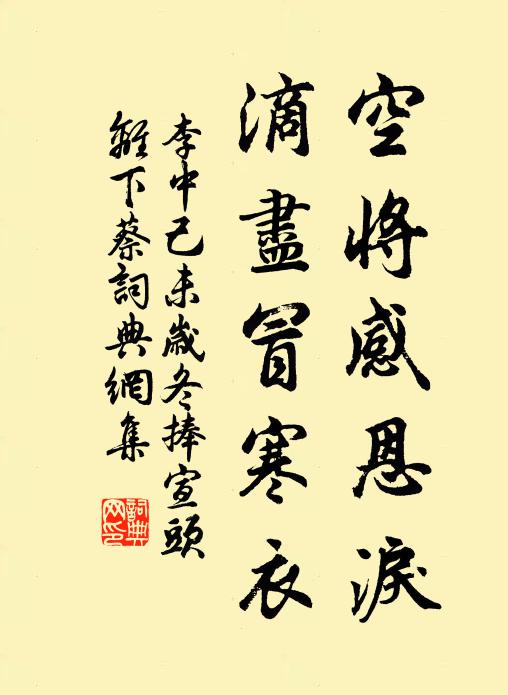 空將感恩淚
滴盡冒寒衣
李中己未歲冬捧宣頭
離下蔡詞典網集
詞典网印